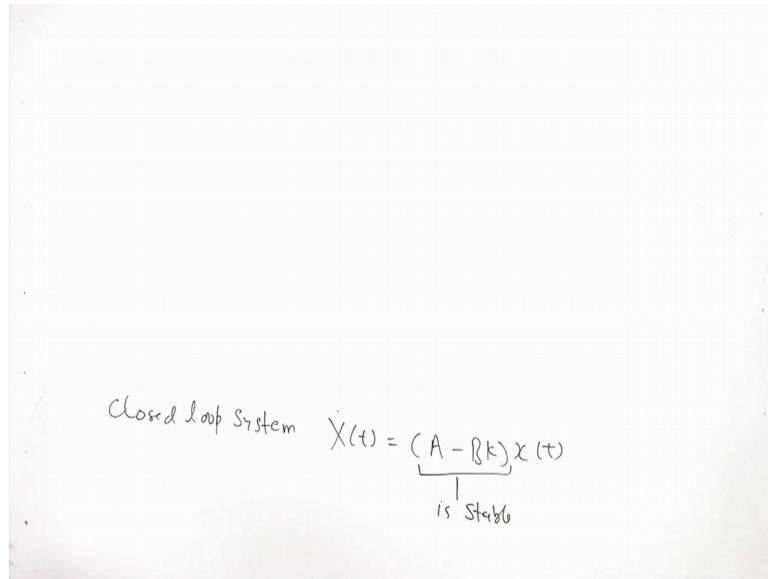 Closed loop System Ẋ(t) = (A - BK) x(t)
is Stable